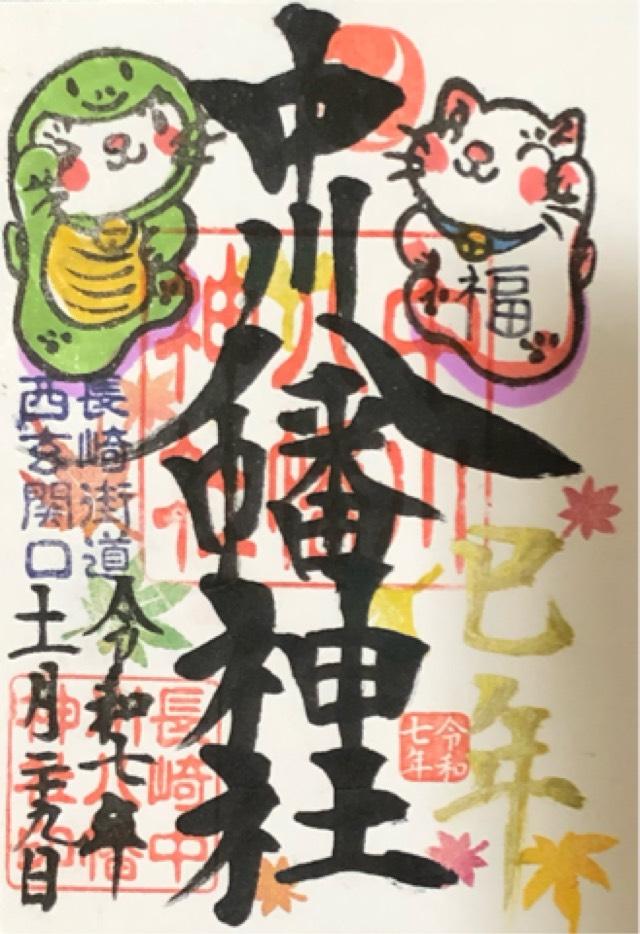 福
巳年
令和
七年
中川八幡神社
中川
八幡
神社
長崎街道
西玄関口
令和七年
十一月二十九日
長崎中
川八幡
神社印